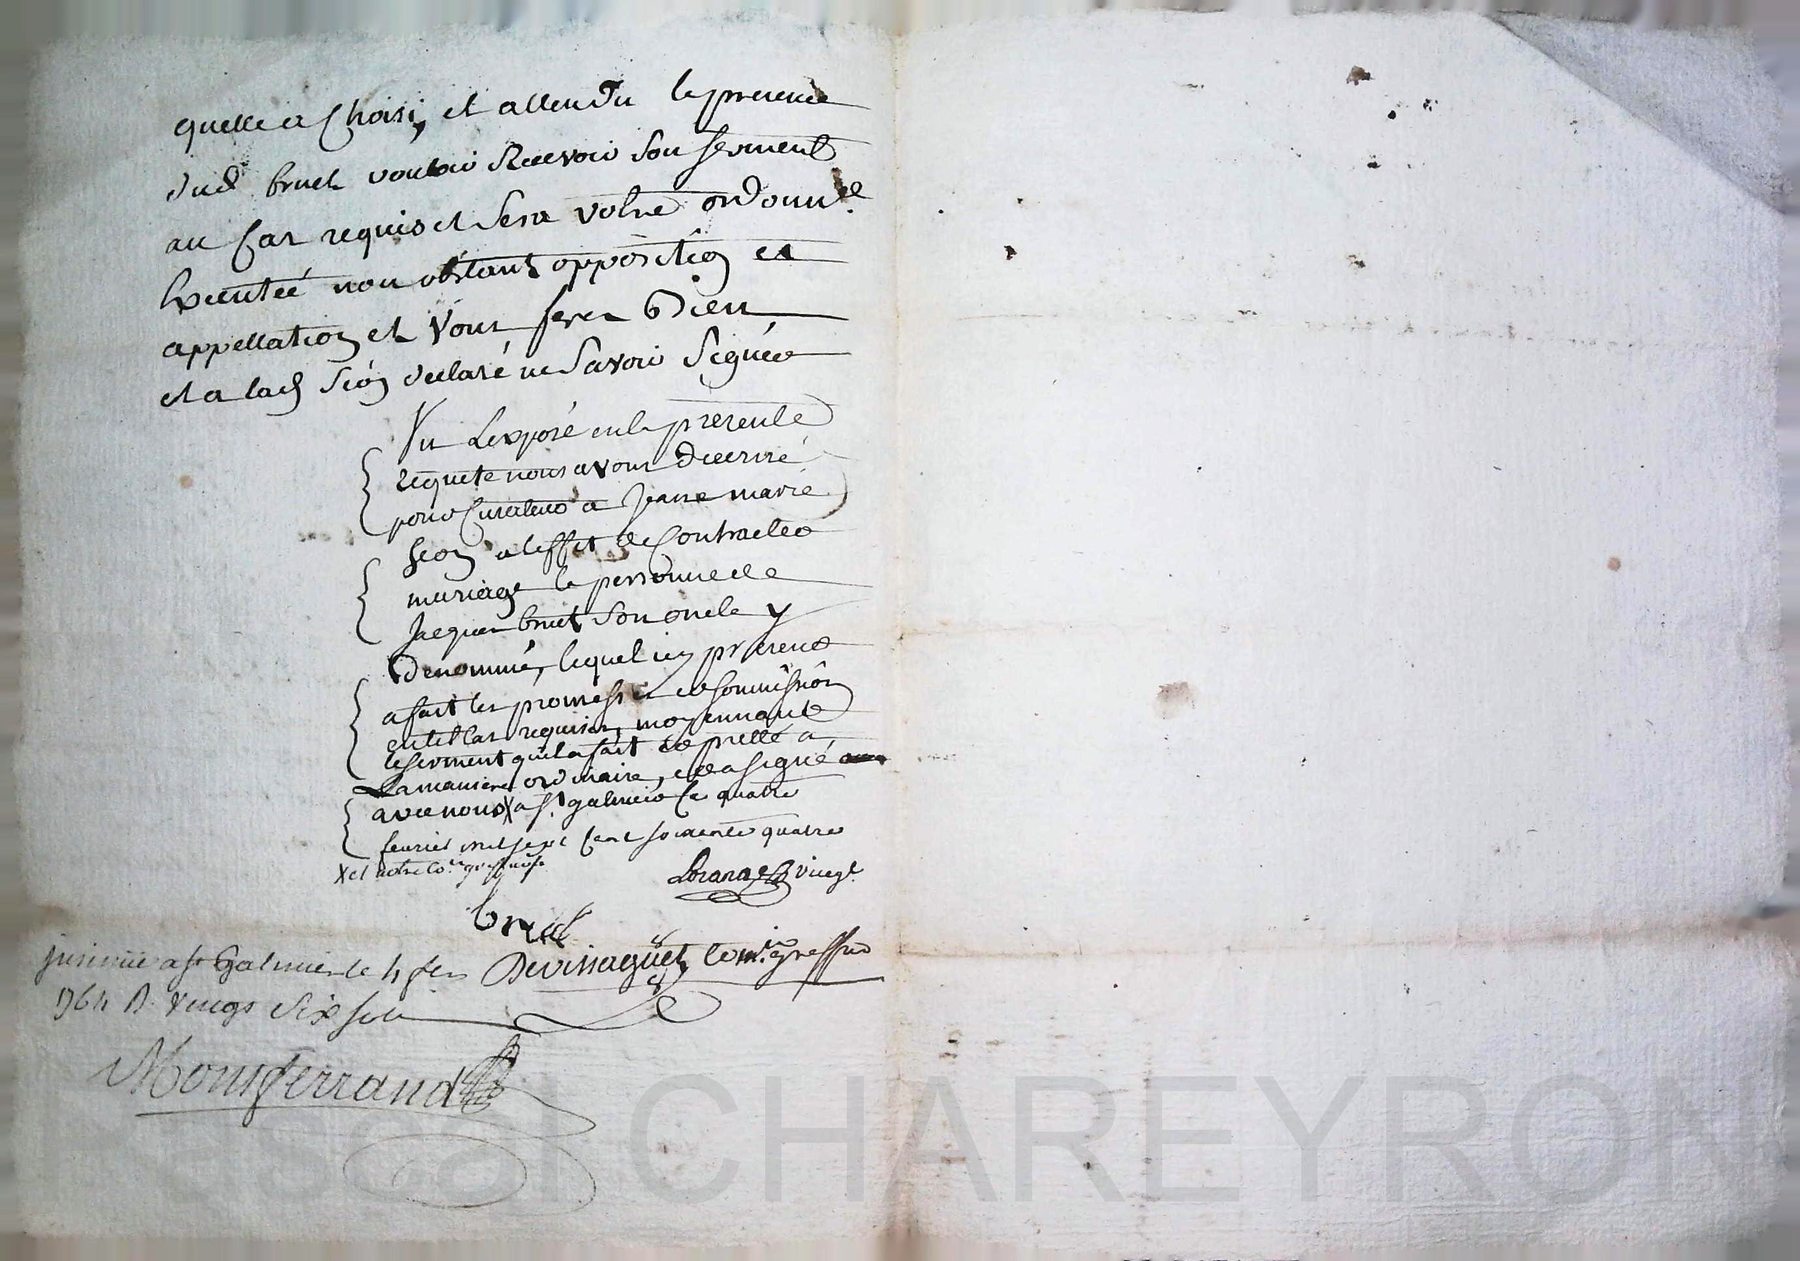 quelle a Choisi, et attendu la presence
dud bruel vouloir Recevoir son serment
au Cas requis et sera votre ordonnce
Executée non obstant opposition et
appellation et Vous ferez Bien
et a lad Sion declaré ne Savoir Signer
Vu Lexposé en la presente
requete nous avons decerné
pour Curateur a Jeane marie
Sion a leffet de Contracter
mariage la personne de
Jacques bruel Son oncle y
denommé, lequel icy presence
a fait les promesses et sommissions
en tel Cas requises, moyennant
le serment quil a fait et presté a
La maniere ordinaire, et a signé
avec nous X a St galmier Ce quatre
fevrier mil sept Cent soixante quatre
X et notre Co. greffier
bruel
insinué a St Galmier le 4 fev Devissaguet Comis greffier
1764 R vingt Six sols
Montferrand
Pascal CHAREYRON